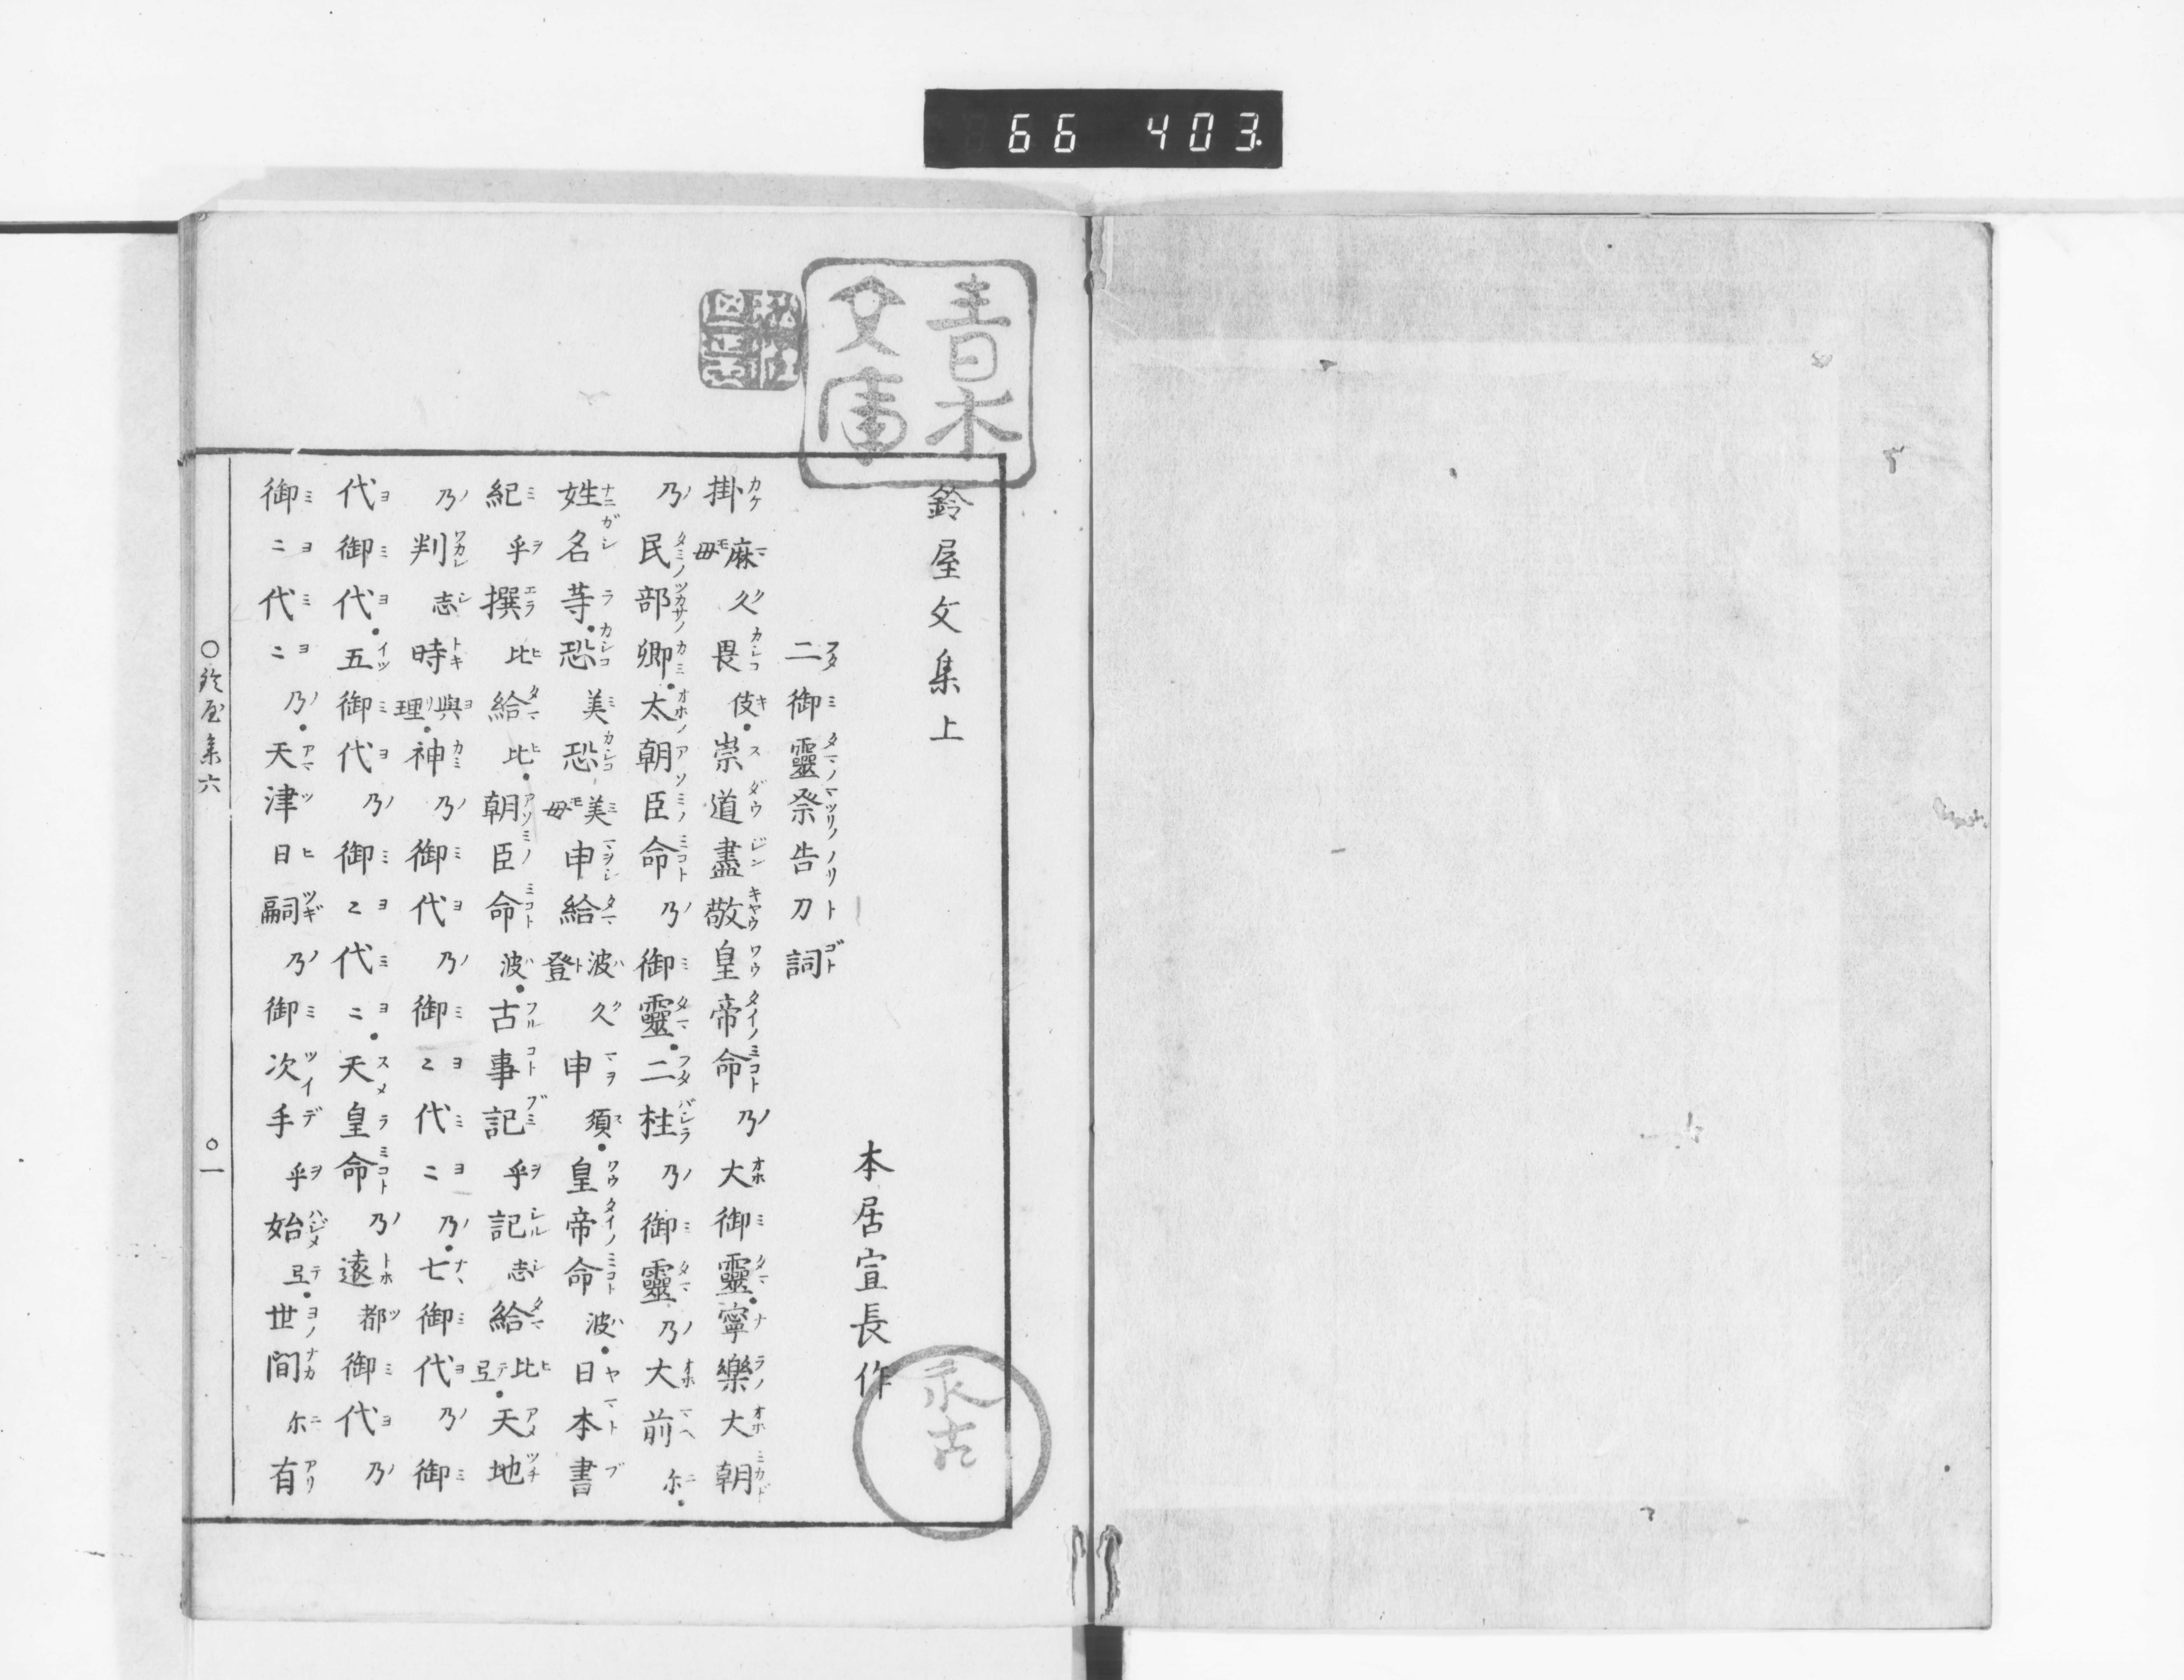 66 403
青木
文庫
鈴屋文集上
本居宣長作
二御靈祭告刀詞
掛麻久毋畏伎.崇道盡敬皇帝命乃大御靈.寧樂大朝
乃民部卿.太朝臣命乃御靈.二柱乃御靈乃大前尓.
姓名等.恐美恐美毋申給波久登申須.皇帝命波.日本書
紀乎撰比給比.朝臣命波.古事記乎記志給比弖.天地
乃判志時與理.神乃御代乃御〻代〻乃.七御代乃御
代御代.五御代乃御〻代〻.天皇命乃遠都御代乃
御〻代〻乃.天津日嗣乃御次手乎始弖.世間尓有
○鈴屋集六 ○一